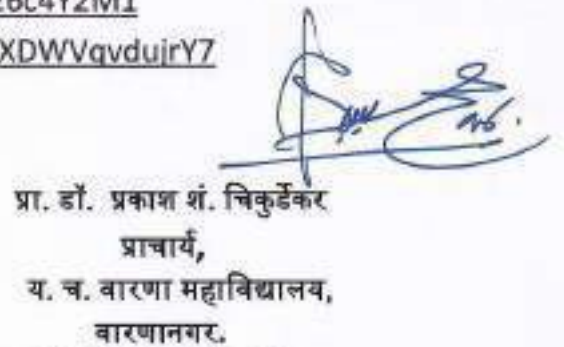 XDWVqvdujrY7
प्रा. डॉ. प्रकाश शं. चिकुर्डेकर
प्राचार्य,
य. च. वारणा महाविद्यालय,
वारणानगर.